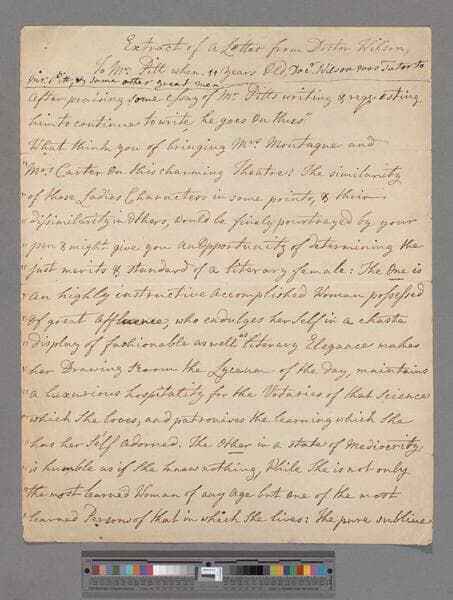 Extract of a Letter from Doctor Wilson,
To Mr. Pitt when 11 Years Old, Docr. Wilson was Tutor to
Mr. Pitt, & some other great men
After praising some essay of Mr. Pitts writing & requesting
him to continue to write he goes on thus"
What think you of bringing Mrs. Montague and
"Mrs Carter on this charming Theatre: The similarity
"of those Ladies Characters in some points, & their
"dissimilarity in Others, would be finely pourtrayed by your
"pen & might give you an Opportunity of determining the
"just merits & standard of a literary female: The One is
"An highly instructive accomplished Woman possessed
"of great affluence, who endulges herself in a chaste
"display of fashionable as well as literary Elegance makes
"her Drawing Room the Lyceum of the day, maintains
"a luxurious hospitality for the Votaries of that Science
"which She loves, and patronises the learning which She
"has her Self adorned. The Other in a state of Mediocrity
"is humble as if She knew nothing, While She is not only
"the most learned Woman of any age but one of the most
"learned Persons of that in which She lives: The pure sublime